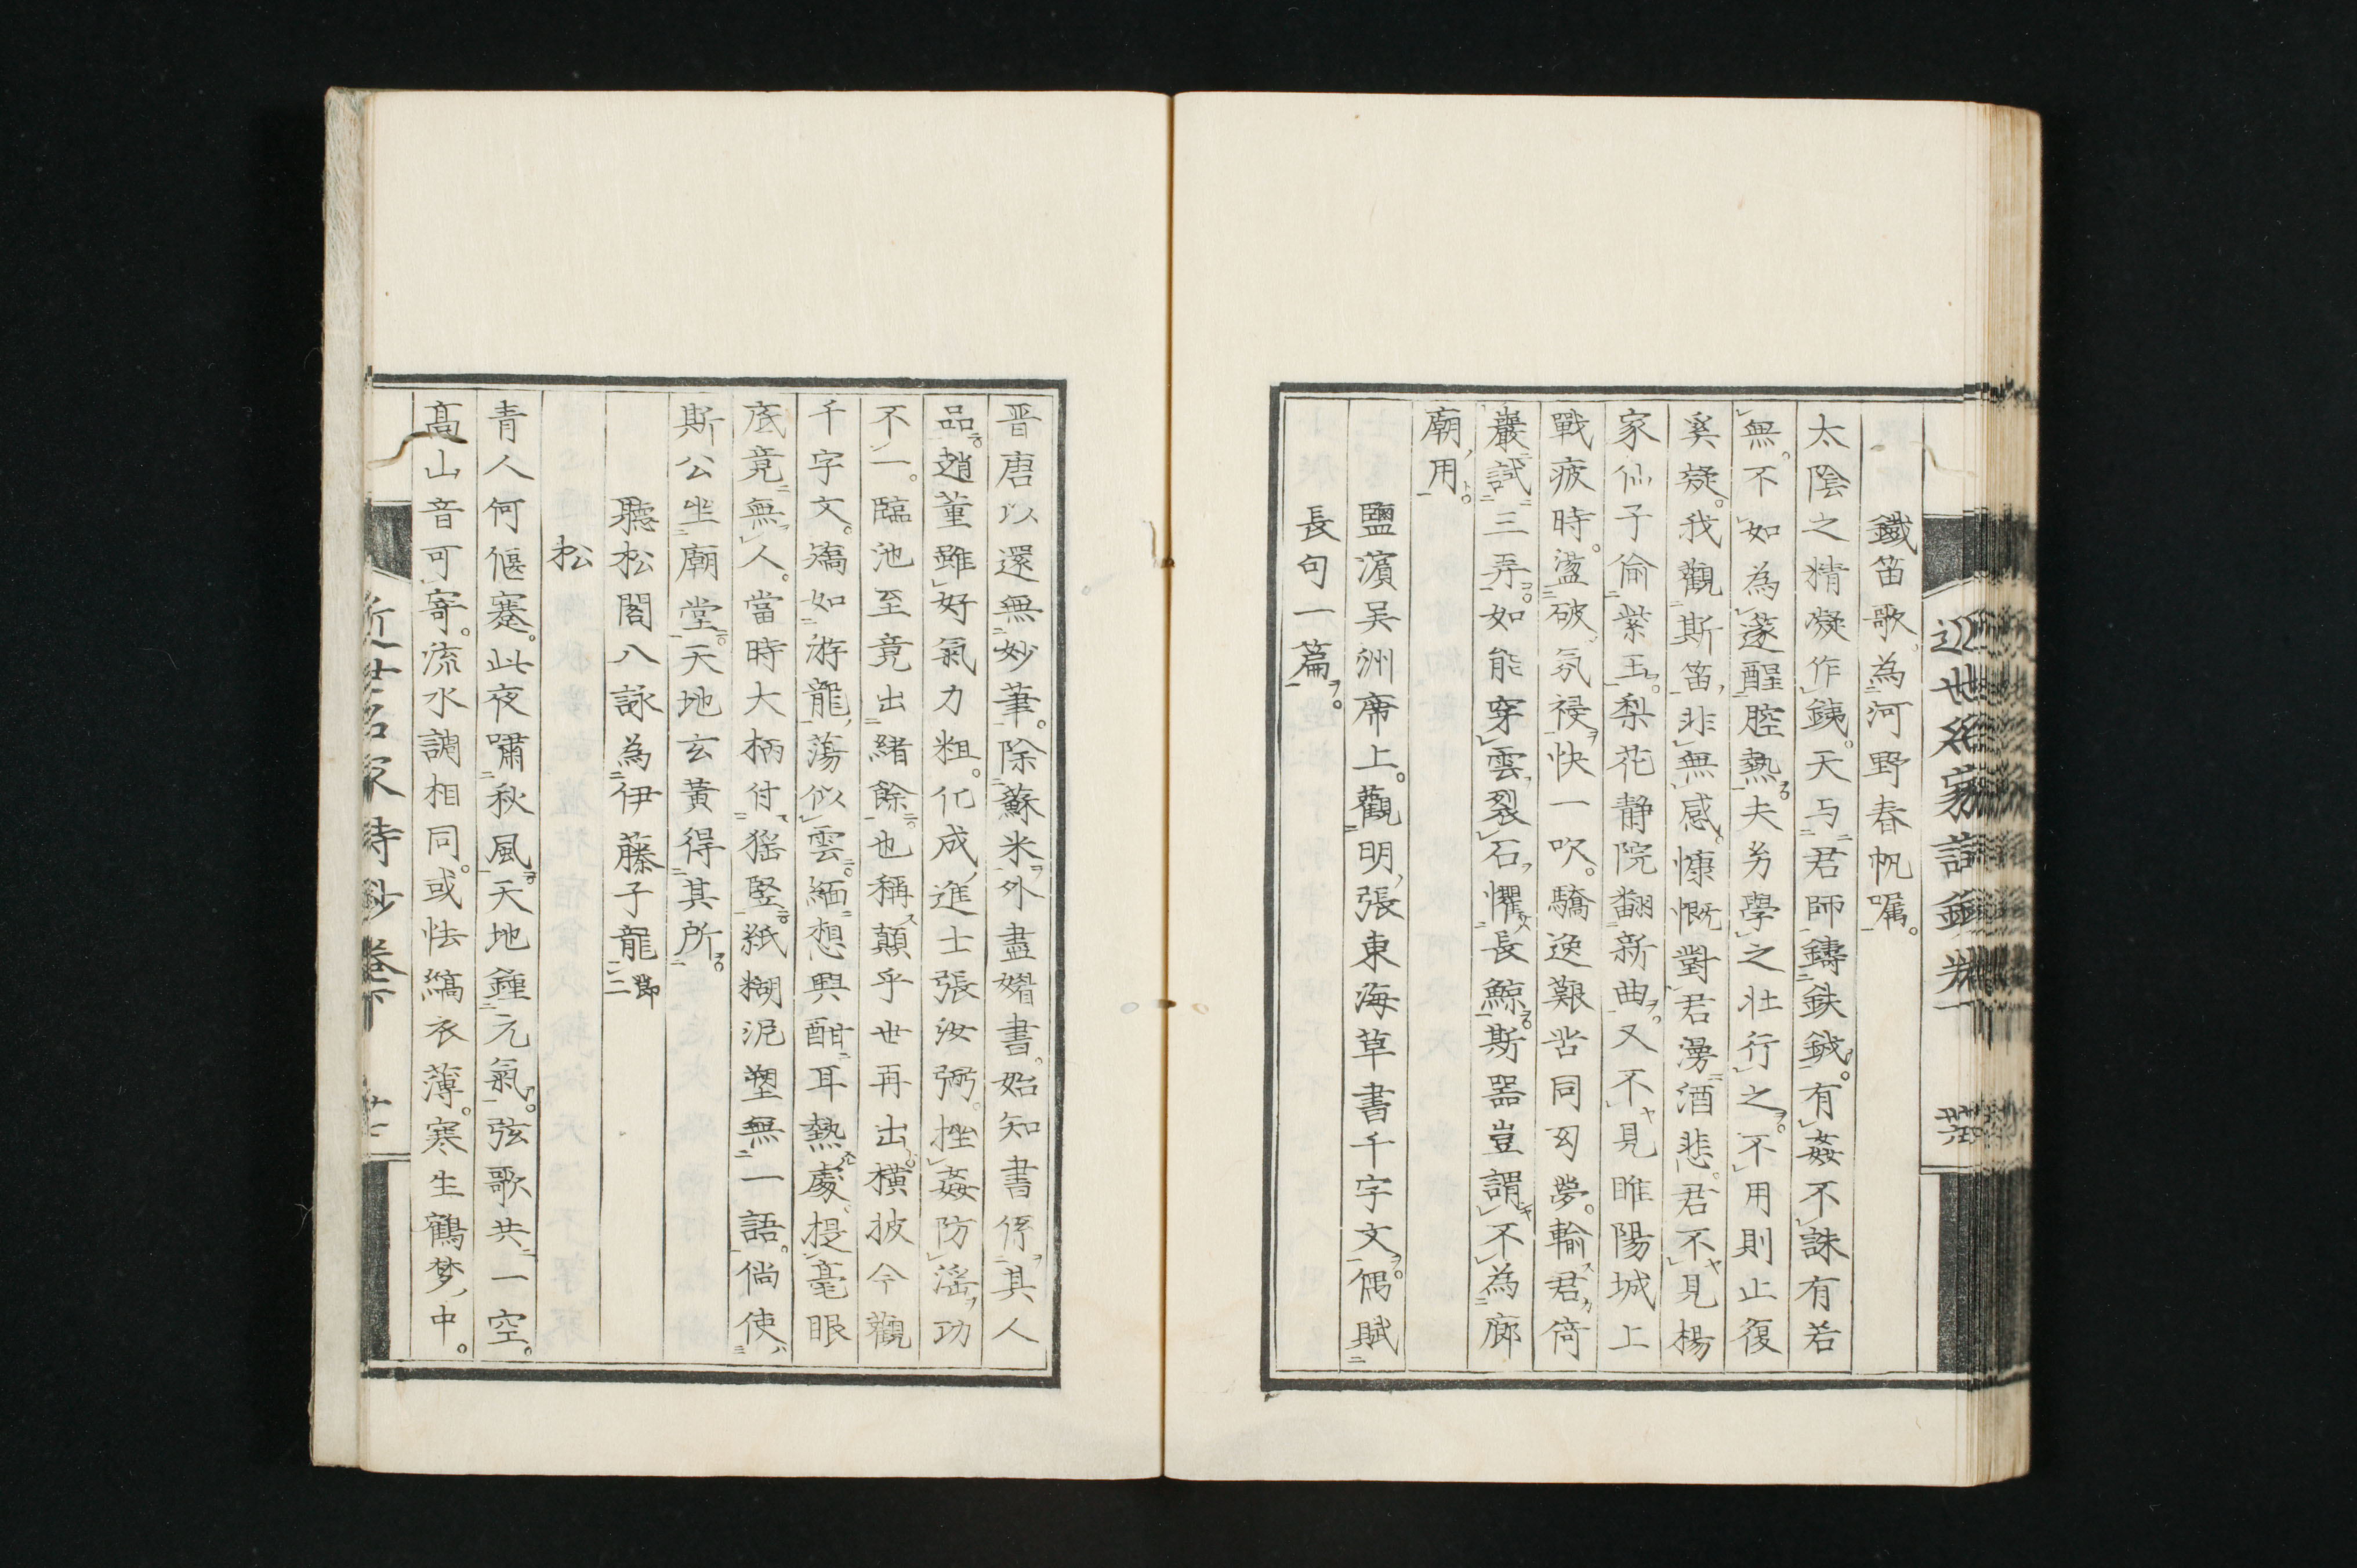 鐵笛歌為河野春帆囑。
太陰之精凝作銕。天与君師鑄鉄鉞。有姦不誅有若
無。不如為篴醒腔熱。夫労學之壮行之。不用則止復
奚疑。我觀斯笛非無感。慷慨對君澷酒悲。君不見楊
家仙子倫紫玉。梨花静院翻新曲。又不見睢陽城上
戰疲時。盪破氛祲快一吹。驕逸艱苦同匁夢。輸君倚
巖試三弄。如能穿雲裂石懼長鯨。斯器豈謂不為廊
廟用。
鹽濱吴洲席上。觀明張東海草書千字文。偶賦
長句一篇。
晋唐以還無妙筆。除蘇米外盡婿書。始知書係其人
品。趙董雖好氣力粗。化成進士張汝弼。挫姦防滛功
不一。臨池至竟出緒餘。也稱顛乎世再出。横披今觀
千字文。矯如游龍蕩似雲。緬想興酣耳熱處。提毫眼
底竟無人。當時大柄付猺竪。紙糊泥塑無一語。倘使
斯公坐廟堂。天地玄黃得其所。
聽松閣八詠為伊藤子龍 節二
松
青人何偃蹇。此夜嘯秋風。天地鍾元氣。弦歌共一空。
髙山音可寄。流水調相同。或怯縞衣薄。寒生鶴梦中。
近世名家詩鈔 卷下